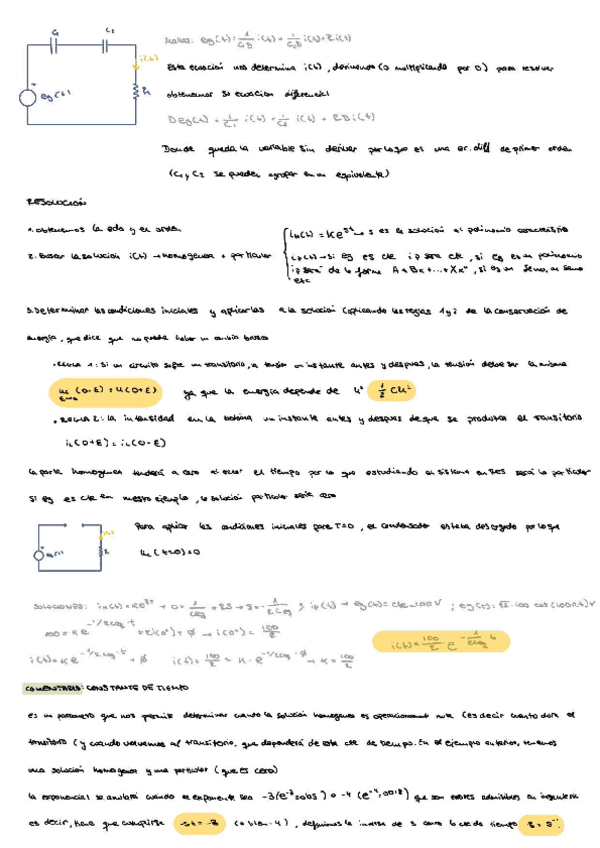 C₁ C₂
MALLAS: eg(t) = 1/C₁D i(t) + 1/C₂D i(t) + R i(t)
i(t)
Esta ecuación nos determina i(t), derivando (o multiplicando por D) para resolver
eg(t)
obtenemos su ecuación diferencial
Deg(t) = 1/C₁ i(t) + 1/C₂ i(t) + RD i(t)
Donde queda la variable sin derivar por lo que es una ec. diff de primer orden
(C₁ y C₂ se pueden agrupar en un equivalente)
RESOLUCIÓN
1. obtenemos la edo y el orden
2. Buscar la solución i(t) → homogénea + particular
iₕ(t) = Ke^st → s es la solución al polinomio característico
ip(t) → si eg es cte ip será cte, si eg es un polinomio
ip será de la forma A + Bx + ... + Xxⁿ, si es un seno, un seno
etc
3. Determinar las condiciones iniciales y aplicarlas a la solución (aplicando las reglas 1 y 2 de la conservación de
energía, que dice que no puede haber un cambio brusco
• REGLA 1: Si un circuito sufre un transitorio, la tensión un instante antes y despues, la tensión debe ser la misma
uc (0-E) = u(0+E) ya que la energía depende de u² 1/2 CU²
E→0
• REGLA 2: la intensidad en la bobina un instante antes y despues de que se produzca el transitorio
iL(0+E) = iL(0-E)
la parte homogenea tenderá a cero al crecer el tiempo por lo que estudiando el sistema en RES será la particular
Si eg es cte en nuestro ejemplo, la solución particular sería cero
Para aplicar las condiciones iniciales para T=0, el condensador estaba descargado por lo que
eg(t)
uc(t=0)=0
SOLUCIONES: iₕ(t) = Ke^st → 0 = 1/Ceq + RS → S = -1/RCeq ; ip(t) → eg(t) = cte = 100V ; eg(t) = √2·100 cos(100πt) V
i(t) = 100/R e^-1/RCeq t
i(t) = Ke^-1/RCeq·t + ∅ i(t) = 100/R = K·e^-1/RCeq·∅ → K = 100/R
COMENTARIO: CONSTANTE DE TIEMPO
es un parametro que nos permite determinar cuando la solución homogenea es operacionalmente nula (es decir cuanto dura el
transitorio (y cuando volvemos al transitorio, que dependerá de esta cte de tiempo. En el ejemplo anterior, tenemos
una solución homogenea y una particular (que es cero)
la exponencial se anulará cuando el exponente sea -3 (e^-3 = 0,05) o -4 (e^-4, 0,018) que son errores admisibles en ingeniería
es decir, tiene que cumplirse -st = -3 (o bien -4), definimos la inversa de s como la cte de tiempo